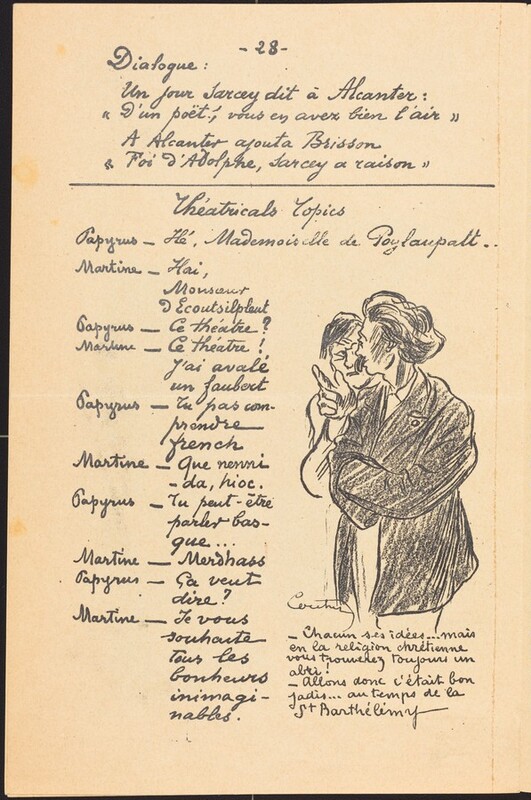 - 28 -
Dialogue :
Un jour Sarcey dit à Alcanter :
« D'un poët', vous en avez bien l'air »
A Alcanter ajouta Brisson
« Foi d'Adolphe, Sarcey a raison »
Théatricals Topics
Papyrus — Hé, Mademoiselle de Poylaupatt..
Martine — Hai,
Monsieur
d'Ecoutsilpleut
Papyrus — Ce théatre ?
Martine — Ce théatre !
J'ai avalé
un faubert
Papyrus — Tu pas com-
prendre
french
Martine — Que nenni
-da, hioc.
Papyrus — Tu peut-être
parler bas-
que...
Martine — Merdhass
Papyrus — Ça veut
dire ?
Martine — Je vous
souhaite
tous les
bonheurs
inimagi-
nables.
— Chacun ses idées... mais
en la religion chrétienne
vous trouverez toujours un
abri !
— Allons donc c'était bon
jadis... au temps de la
St Barthélémy